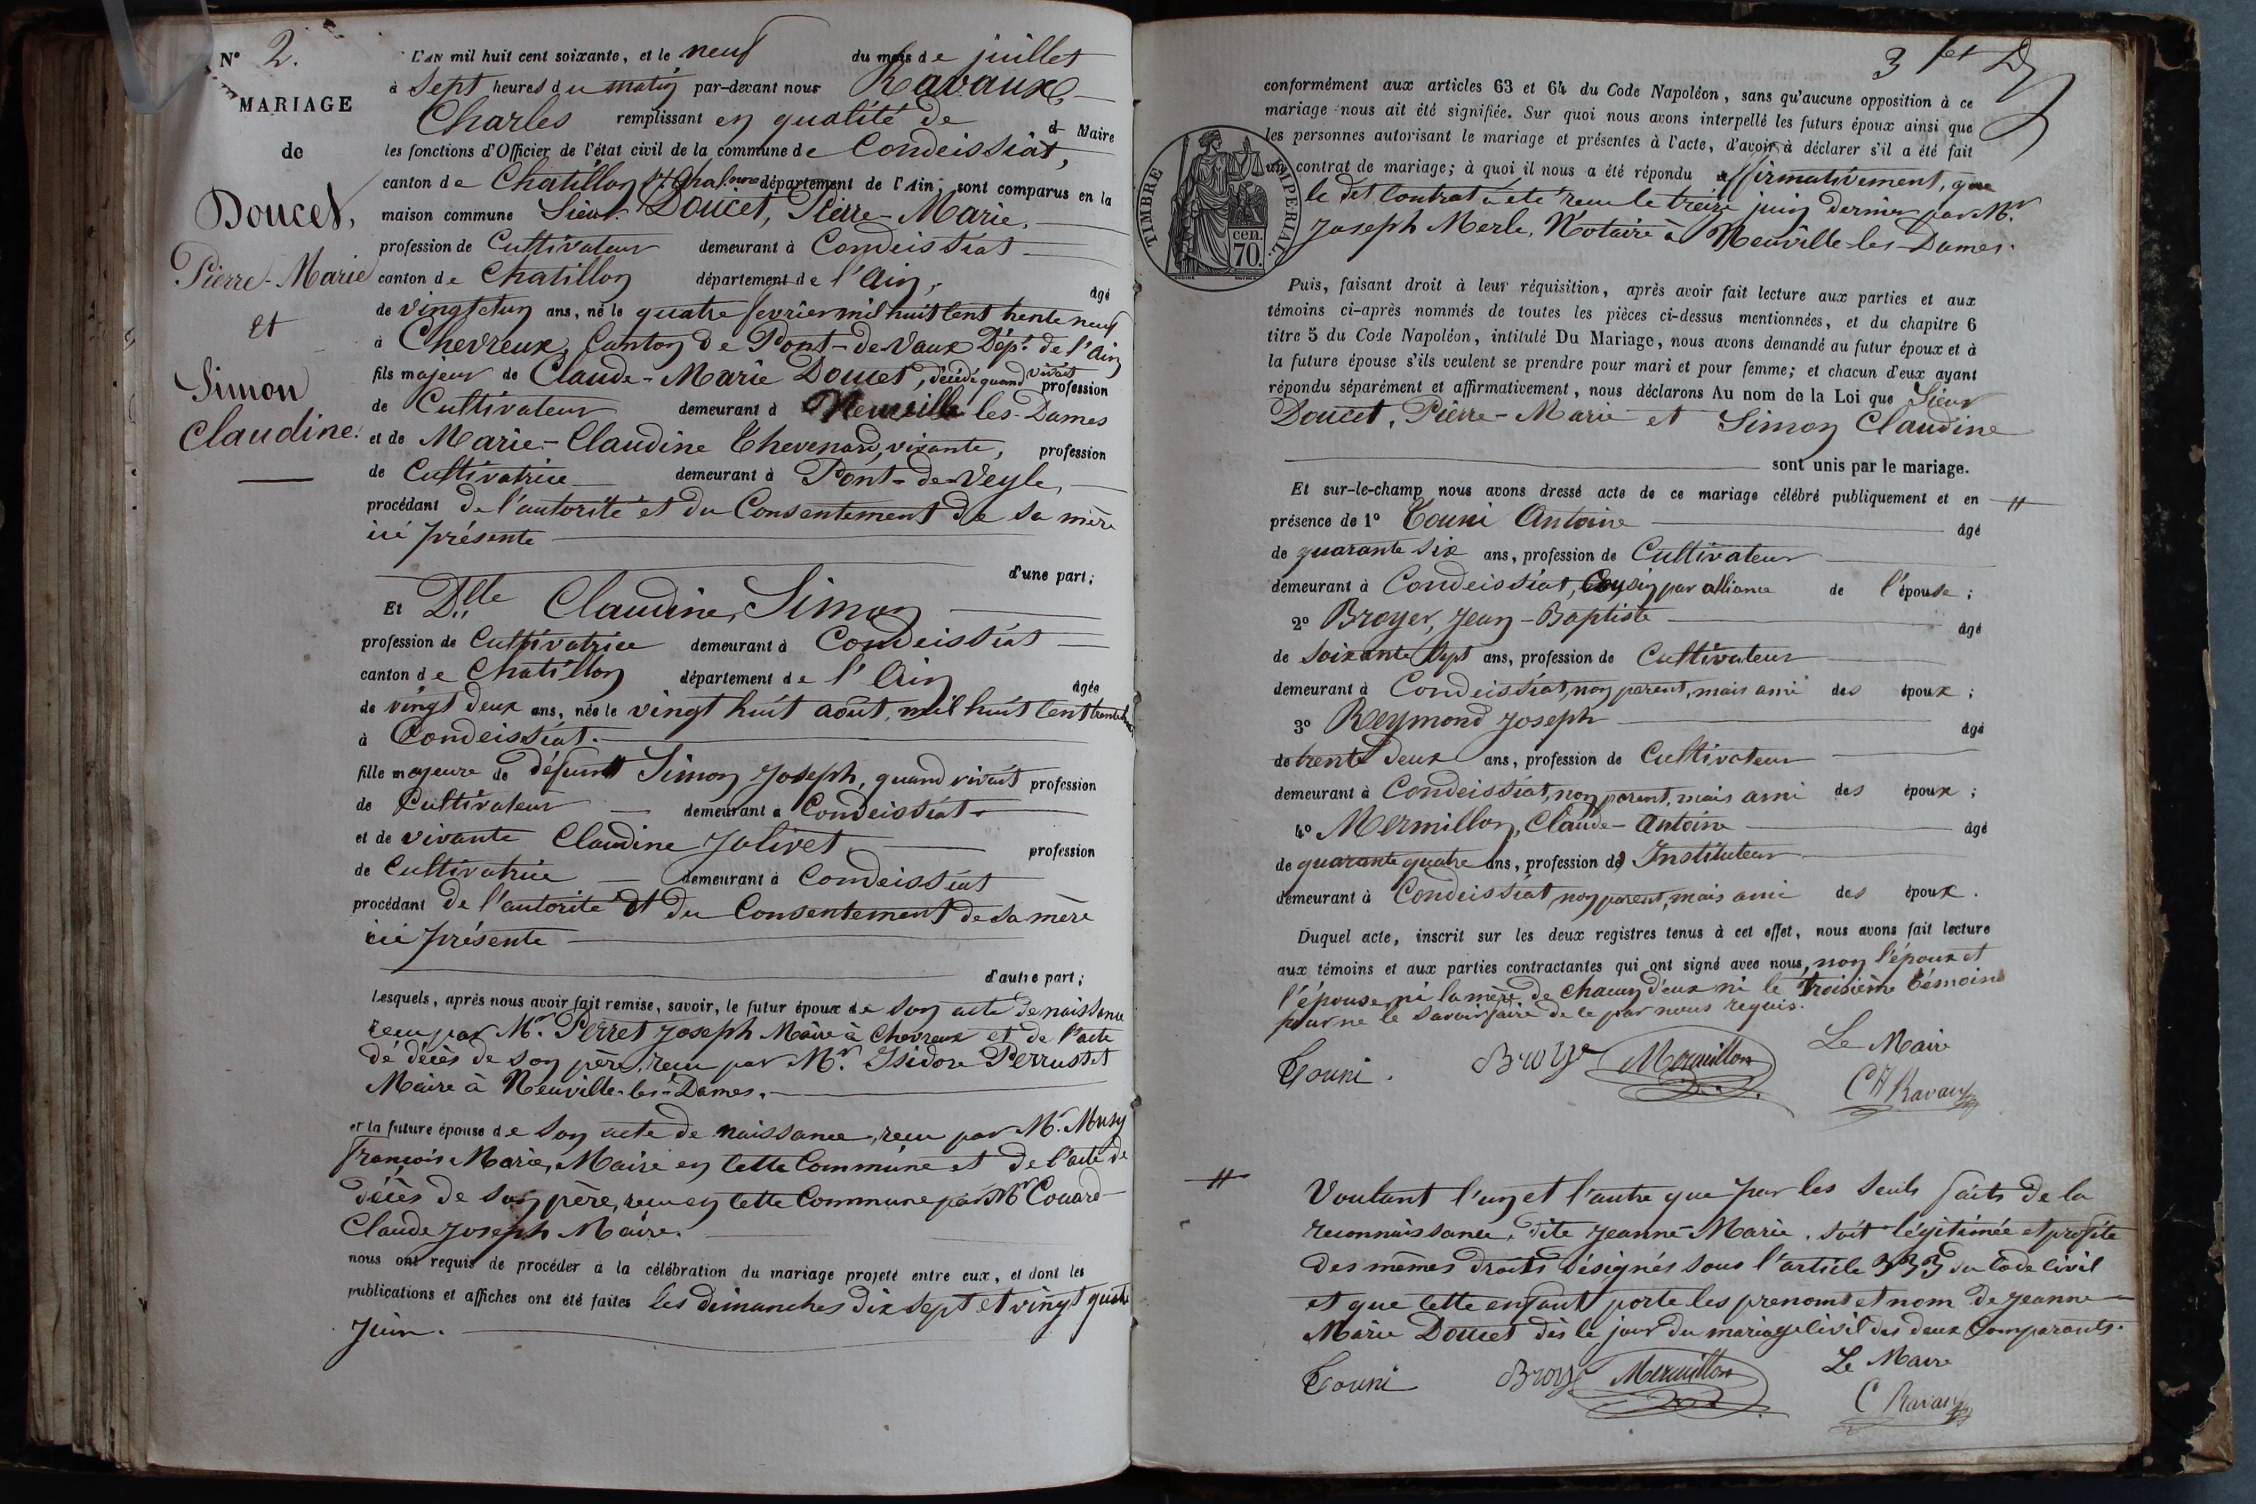 N° 2.
MARIAGE
de
Doucet,
Pierre-Marie
et
Simon
Claudine.
L'AN mil huit cent soixante, et le neuf du mois de juillet
à sept heures du matin par-devant nous Ravaux
Charles remplissant en qualité de Maire
les fonctions d'Officier de l'état civil de la commune de Condeissiat,
canton de Chatillon département de l'Ain, sont comparus en la
maison commune Sieur Doucet, Pierre-Marie.
profession de Cultivateur demeurant à Condeissiat
canton de Chatillon département de l'Ain, âgé
de vingt et un ans, né le quatre fevrier mil huit cent trente neuf
à Chevreux, Canton de Pont-de-Vaux Dépt de l'Ain
fils majeur de Claude-Marie Doucet, décédé quand vivait profession
de Cultivateur demeurant à Neuville les-Dames
et de Marie-Claudine Thevenard, vivante, profession
de Cultivatrice demeurant à Pont-de-Veyle,
procédant de l'autorité et du Consentement de sa mère
ici présente
d'une part;
Et Dlle Claudine, Simon
profession de Cultivatrice demeurant à Condeissiat
canton de Chatillon département de l'Ain âgée
de vingt deux ans, née le vingt huit août, mil huit cent trente
à Condeissiat.
fille majeure de défunt Simon Joseph, quand vivait profession
de Cultivateur demeurant à Condeissiat
et de vivante Claudine Jolivet profession
de Cultivatrice demeurant à Condeissiat
procédant de l'autorité et du Consentement de sa mère
ici présente
d'autre part;
Lesquels, après nous avoir fait remise, savoir, le futur époux de son acte de naissance
reçu par Mr. Perret Joseph Maire à Chevreux et de l'acte
de décès de son père, reçu par Mr. Isidore Perrustet
Maire à Neuville-les-Dames.
et la future épouse de son acte de naissance, reçu par Mr. Musy
François Marie, Maire en cette Commune et de l'acte de
décès de son père, reçu en cette Commune par Mr Couard
Claude Joseph Maire.
nous ont requis de procéder à la célébration du mariage projeté entre eux, et dont les
publications et affiches ont été faites les dimanches dix sept et vingt quatre
Juin.
3
conformément aux articles 63 et 64 du Code Napoléon, sans qu'aucune opposition à ce
mariage nous ait été signifiée. Sur quoi nous avons interpellé les futurs époux ainsi que
les personnes autorisant le mariage et présentes à l'acte, d'avoir à déclarer s'il a été fait
un contrat de mariage; à quoi il nous a été répondu affirmativement, que
le dit Contrat a été reçu le treize juin dernier par Mr
Joseph Merle, Notaire à Neuville-les-Dames.
TIMBRE IMPERIAL.
cen.
70.
Puis, faisant droit à leur réquisition, après avoir fait lecture aux parties et aux
témoins ci-après nommés de toutes les pièces ci-dessus mentionnées, et du chapitre 6
titre 5 du Code Napoléon, intitulé Du Mariage, nous avons demandé au futur époux et à
la future épouse s'ils veulent se prendre pour mari et pour femme; et chacun d'eux ayant
répondu séparément et affirmativement, nous déclarons Au nom de la Loi que Sieur
Doucet, Pierre-Marie et Simon Claudine
sont unis par le mariage.
Et sur-le-champ nous avons dressé acte de ce mariage célébré publiquement et en #
présence de 1° Touni Antoine âgé
de quarante six ans, profession de Cultivateur
demeurant à Condeissiat, Cousin par alliance de l'épouse;
2° Broyer, Jean-Baptiste âgé
de soixante sept ans, profession de Cultivateur
demeurant à Condeissiat, non parent, mais ami des époux;
3° Reymond Joseph âgé
de trente deux ans, profession de Cultivateur
demeurant à Condeissiat, non parent, mais ami des époux;
4° Mermillon, Claude-Antoine âgé
de quarante quatre ans, profession de Instituteur
demeurant à Condeissiat, non parent, mais ami des époux.
Duquel acte, inscrit sur les deux registres tenus à cet effet, nous avons fait lecture
aux témoins et aux parties contractantes qui ont signé avec nous, non l'époux et
l'épouse, ni la mère de chacun d'eux ni le troisième témoins
pour ne le savoir faire de ce par nous requis.
Touni. Broye Mermillon Le Maire
CH Ravaux
# Voulant l'un et l'autre que par les seuls faits de la
reconnaissance, dite Jeanne-Marie, soit légitimée et profite
des mêmes droits désignés sous l'article 333 du Code Civil
et que cette enfant porte les prenoms et nom de Jeanne
Marie Doucet dès le jour du mariage Civil des deux Comparants.
Touni Broye Mermillon Le Maire
C Ravaux